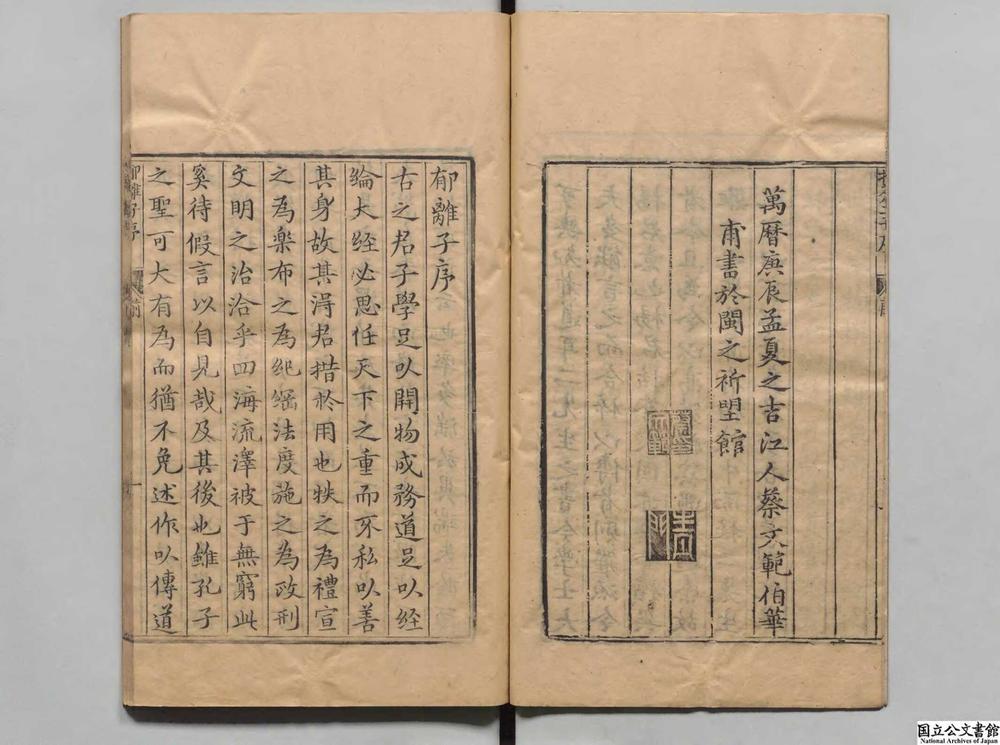 萬曆庚辰孟夏之吉江人蔡文範伯華
甫書於閩之祈堲館
郁離子序
古之君子學足以開物成務道足以經
綸大經必思任天下之重而不私以善
其身故其得君措於用也秩之為禮宣
之為樂布之為紀綱法度施之為政刑
文明之治洽乎四海流澤被于無窮此
奚待假言以自見哉及其後也雖孔子
之聖可大有為而猶不免述作以傳道
郁離子序
前
一
国立公文書館
National Archives of Japan